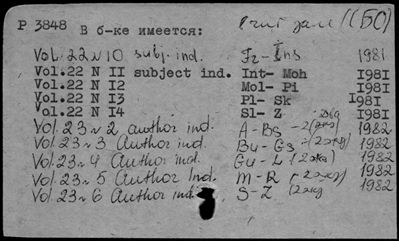 P 3848 В б-ке имеется: (БС)
Vol. 22 N 10 subj. ind. Fr- Ins 1981
Vol.22 N II subject ind. Int- Moh I98I
Vol.22 N I2 Mol- Pi I98I
Vol.22 N I3 Pl- Sk I98I
Vol.22 N I4 Sl- Z I98I
Vol 23 N 2 author ind. A - Bs - 1982
Vol 23 N 3 Author ind. Bu - Gs 1982
Vol. 23 N 4 Author ind. Gu - L (2 экз) 1982
Vol. 23 N 5 Author Ind. M - R (2 экз) 1982
Vol. 23 N 6 Author ind. S - Z (2 экз) 1982